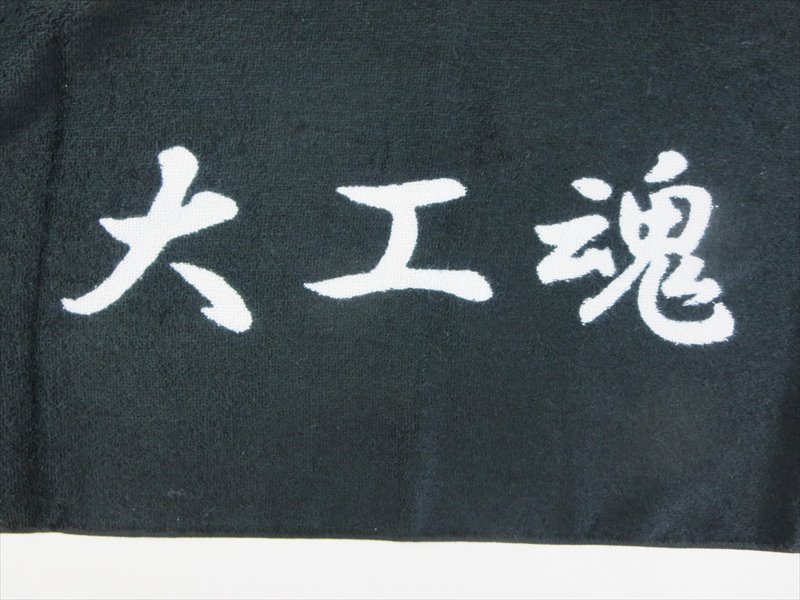 大工魂